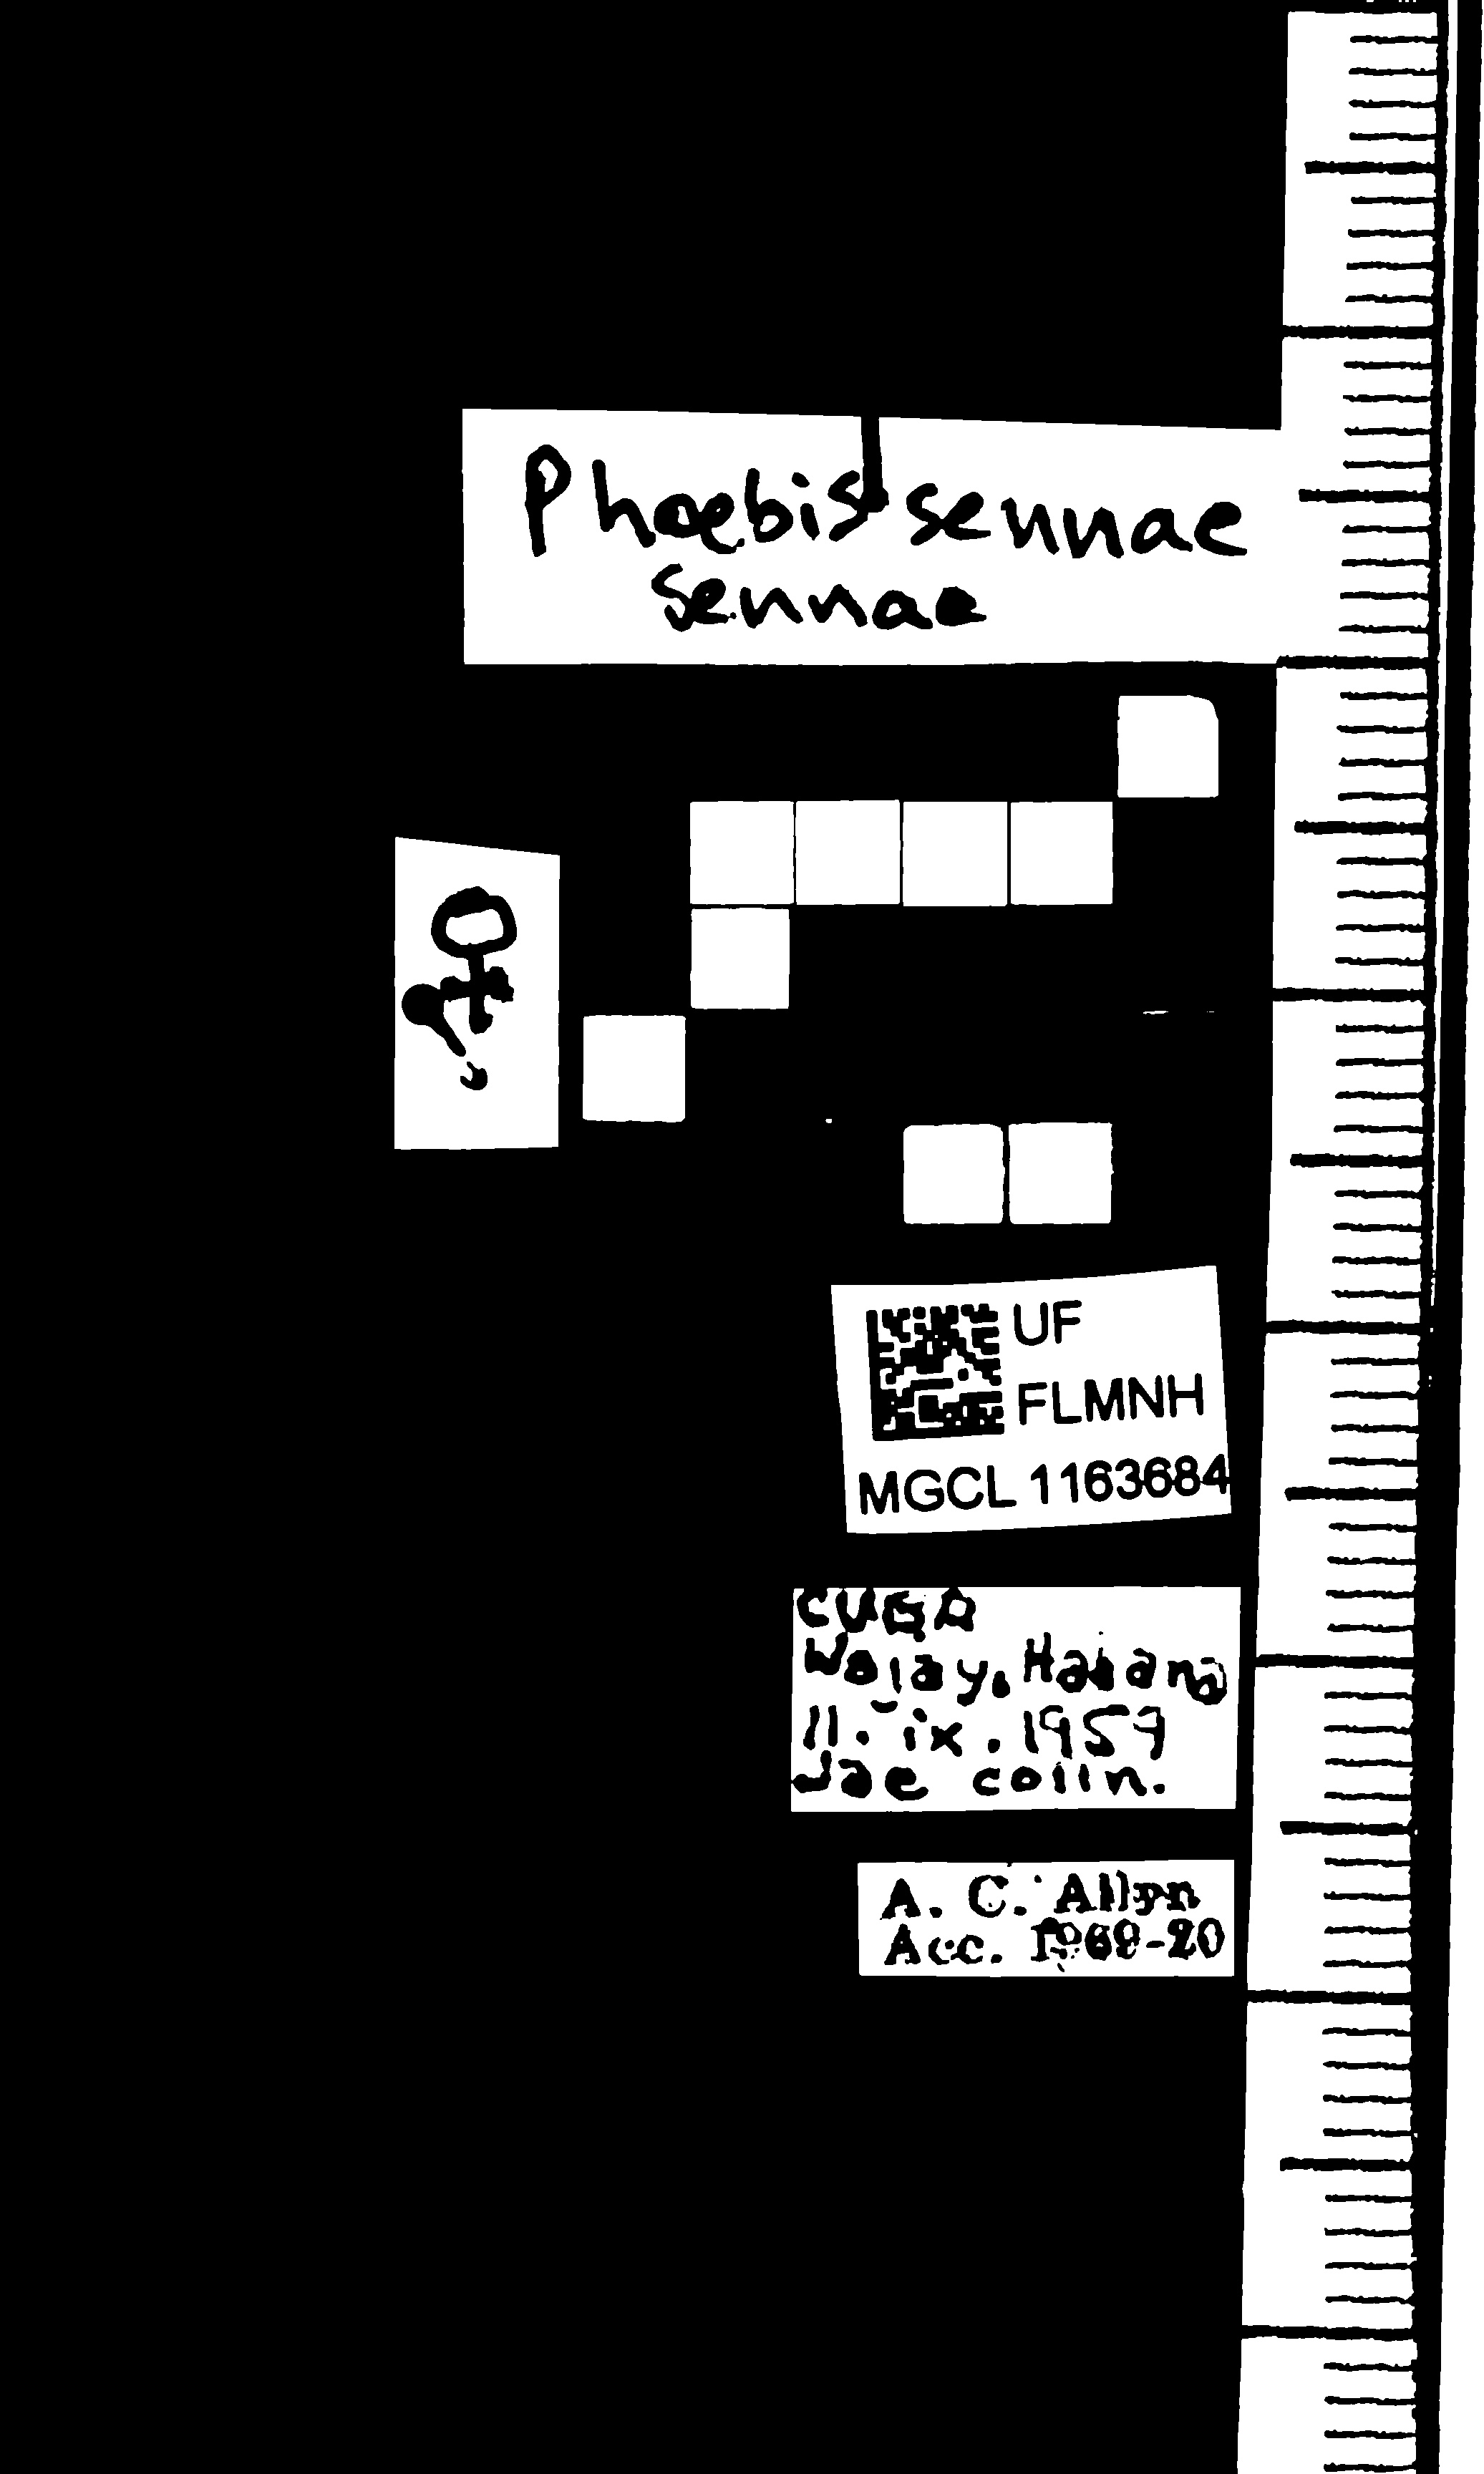 Phoebis sennae
sennae
♀
UF
FLMNH
MGCL 1163684
CUBA
Habana
11. ix. 1959
colln.
A. C. Allyn
Acc. 1969-20